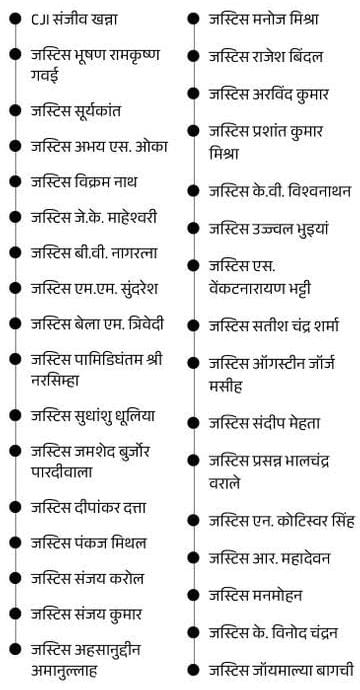 CJI संजीव खन्ना
जस्टिस भूषण रामकृष्ण
गवई
जस्टिस सूर्यकांत
जस्टिस अभय एस. ओका
जस्टिस विक्रम नाथ
जस्टिस जे.के. माहेश्वरी
जस्टिस बी.वी. नागरत्ना
जस्टिस एम.एम. सुंदरेश
जस्टिस बेला एम. त्रिवेदी
जस्टिस पामिडिघंतम श्री
नरसिम्हा
जस्टिस सुधांशु धूलिया
जस्टिस जमशेद बुर्जोर
पारदीवाला
जस्टिस दीपांकर दत्ता
जस्टिस पंकज मिथल
जस्टिस संजय करोल
जस्टिस संजय कुमार
जस्टिस अहसानुद्दीन
अमानुल्लाह
जस्टिस मनोज मिश्रा
जस्टिस राजेश बिंदल
जस्टिस अरविंद कुमार
जस्टिस प्रशांत कुमार
मिश्रा
जस्टिस के.वी. विश्वनाथन
जस्टिस उज्ज्वल भुइयां
जस्टिस एस.
वेंकटनारायण भट्टी
जस्टिस सतीश चंद्र शर्मा
जस्टिस ऑगस्टीन जॉर्ज
मसीह
जस्टिस संदीप मेहता
जस्टिस प्रसन्न भालचंद्र
वराले
जस्टिस एन. कोटिस्वर सिंह
जस्टिस आर. महादेवन
जस्टिस मनमोहन
जस्टिस के. विनोद चंद्रन
जस्टिस जॉयमाल्या बागची